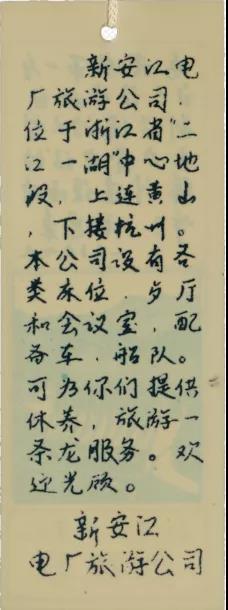 新安江电
厂旅游公司,
位于浙江省"二
江一湖"中心地
段,上连黄山
,下接杭州。
本公司设有各
类床位,歺厅
和会议室,配
备车、船队。
可为你们提供
休养,旅游一
条龙服务。欢
迎光顾。
新安江
电厂旅游公司